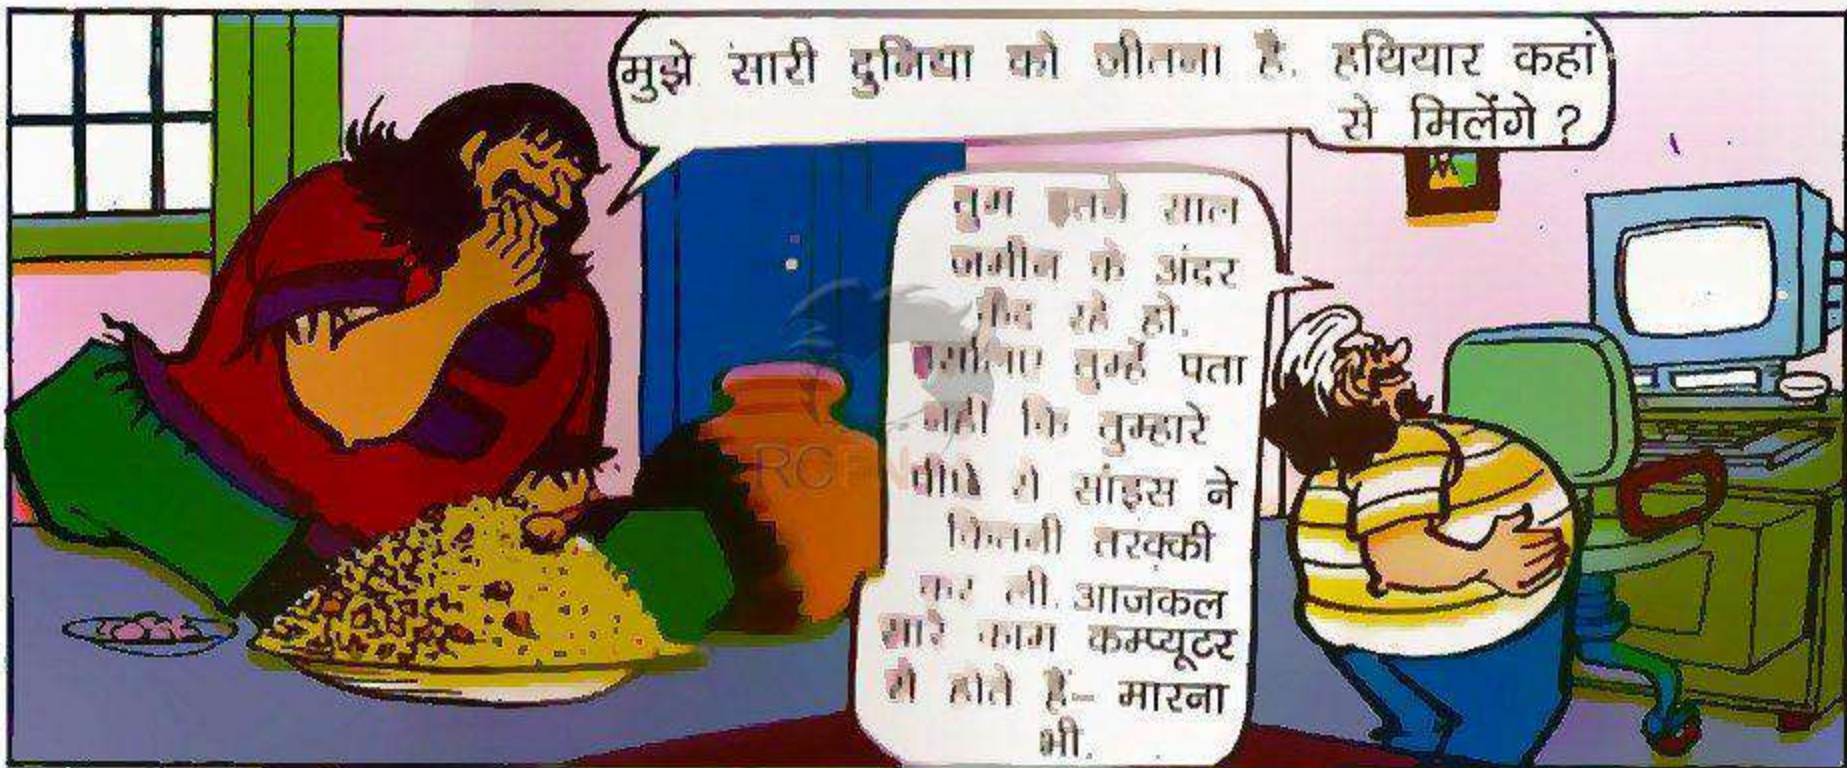 मुझे सारी दुनिया को जीतना है. हथियार कहां
से मिलेंगे ?
तुम इतने साल
जमीन के अंदर
कैद रहे हो.
इसलिए तुम्हें पता
नहीं कि तुम्हारे
पीछे से सांइस ने
कितनी तरक्की
कर ली. आजकल
सारे काम कम्प्यूटर
से होते हैं- मारना
भी.